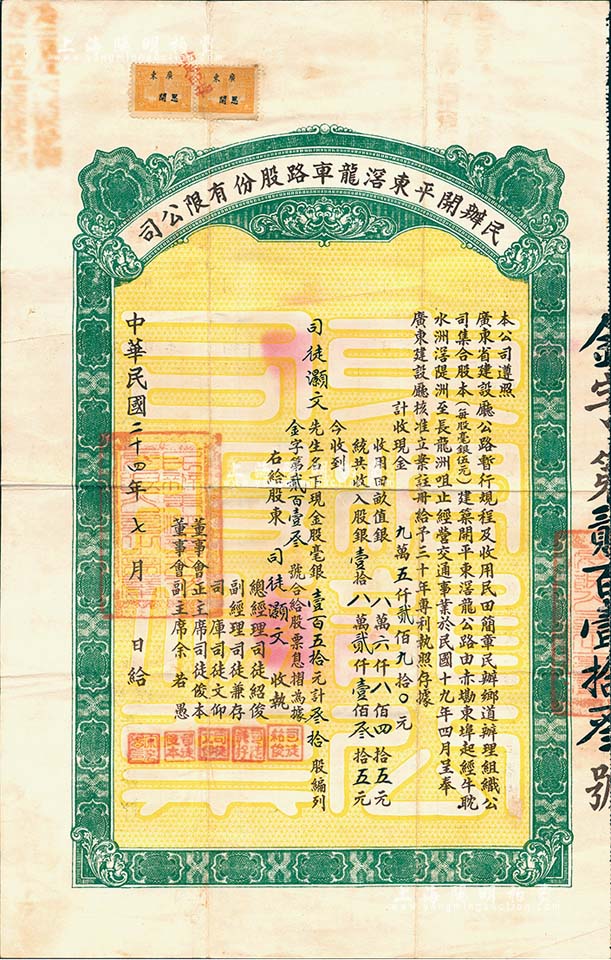 上海陽明拍賣
廣東
恩開
廣東
恩開
民辦開平東滘龍車路股份有限公司
本公司遵照
廣東省建設廳公路暫行規程及收用民田簡章民辦鄉道辦理組織公
司集合股本(每股毫銀伍元)建築開平東滘龍公路由赤墈東埠起經牛𦨭
水洲滘隄洲至長龍洲咀止經營交通事業於民國十九年四月呈奉
廣東建設廳核准立案註冊給予三十年專利執照存據
計收現金 九萬五仟貳佰九拾〇元
收用田畝值銀 八萬六仟八佰四拾五元
統共收入股銀壹拾八萬貳仟壹佰叁拾五元
今收到
司徒灝文先生名下現金股毫銀壹百五拾元計叁拾股編列
金字第貳百壹叁號合給股票息摺為據
右給股東 司徒灝文 收執
總經理司徒紹俊
副經理司徒兼存
司庫司徒文仰
董事會正主席司徒俊本
董事會副主席余若愚
中華民國二十四年七月 日給
金字第貳百壹拾叁號